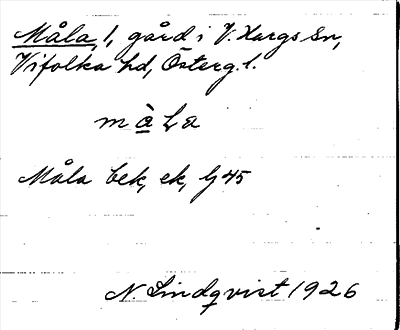 Måla, 1, gård i V. Hargs Sn,
Vifolka hd, Österg. l.
màla
Måla bek, ek, G 45
N. Lindqvist 1926